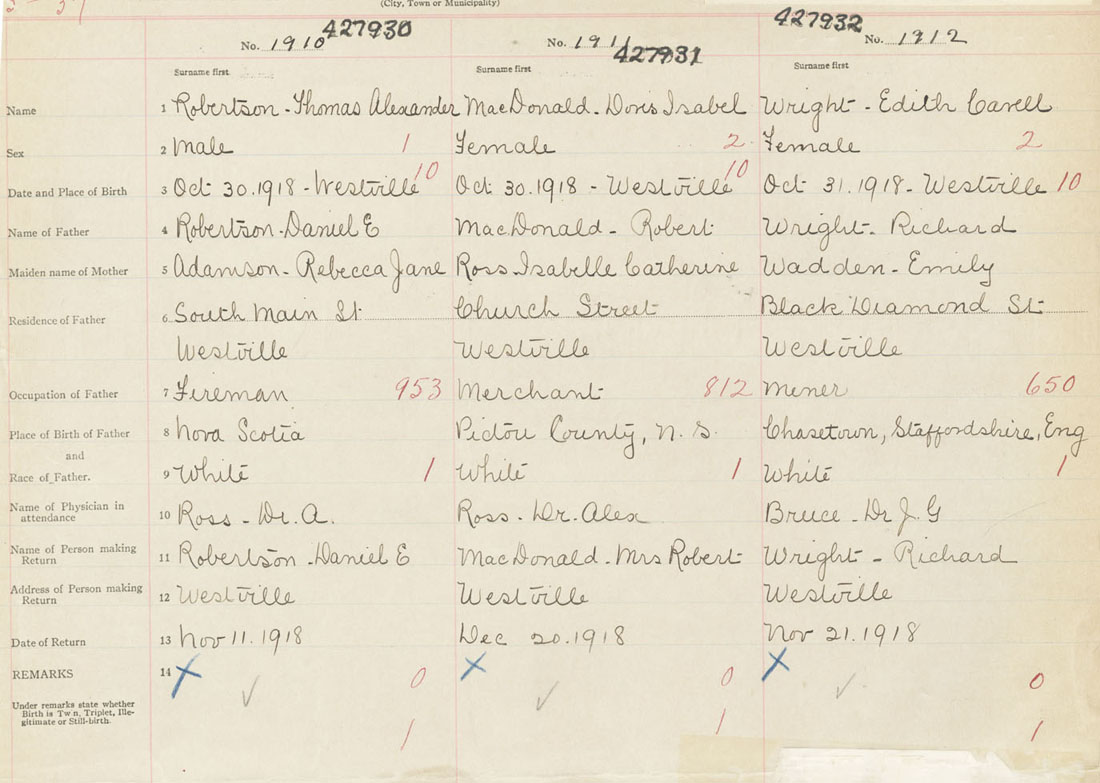 (City, Town or Municipality)
427930 427932
No. 1910 No. 1911 427931 No. 1912
Surname first. Surname first Surname first
Name 1 Robertson - Thomas Alexander MacDonald - Doris Isabel Wright - Edith Cavell
Sex 2 Male 1 Female 2 Female 2
Date and Place of Birth 3 Oct 30.1918 - Westville 10 Oct 30.1918 - Westville 10 Oct 31.1918 - Westville 10
Name of Father 4 Robertson - Daniel E MacDonald - Robert Wright - Richard
Maiden name of Mother 5 Adamson - Rebecca Jane Ross - Isabelle Catherine Wadden - Emily
Residence of Father 6 South Main St. Church Street Black Diamond St
Westville Westville Westville
Occupation of Father 7 Fireman 953 Merchant 812 Miner 650
Place of Birth of Father 8 Nova Scotia Pictou County, N.S. Chasetown, Staffordshire, Eng
and
Race of Father. 9 White 1 White 1 White 1
Name of Physician in
attendance 10 Ross - Dr. A. Ross - Dr. Alex Bruce - Dr J. G
Name of Person making
Return 11 Robertson - Daniel E MacDonald - Mrs Robert Wright - Richard
Address of Person making
Return 12 Westville Westville Westville
Date of Return 13 Nov 11.1918 Dec 20.1918 Nov 21.1918
REMARKS 14 X 0 X 0 X 0
Under remarks state whether
Birth is Twin, Triplet, Ille-
gitimate or Still-birth.
1 1 1